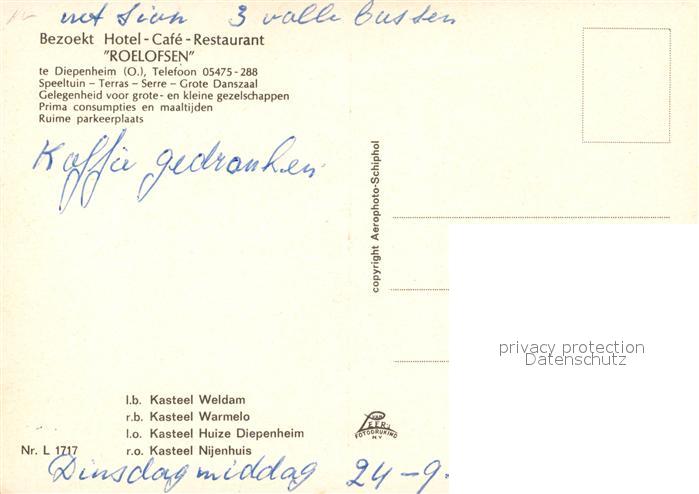 met Sion 3 volle bussen
Bezoekt Hotel-Café-Restaurant
"ROELOFSEN"
te Diepenheim (O.), Telefoon 05475-288
Speeltuin – Terras – Serre – Grote Danszaal
Gelegenheid voor grote- en kleine gezelschappen
Prima consumpties en maaltijden
Ruime parkeerplaats
Koffie gedronken
copyright Aerophoto-Schiphol
privacy protection
Datenschutz
l.b. Kasteel Weldam
r.b. Kasteel Warmelo
l.o. Kasteel Huize Diepenheim
Nr. L 1717 r.o. Kasteel Nijenhuis
VAN LEER'S
FOTODRUKIND
N.V.
Dinsdagmiddag 24-9-